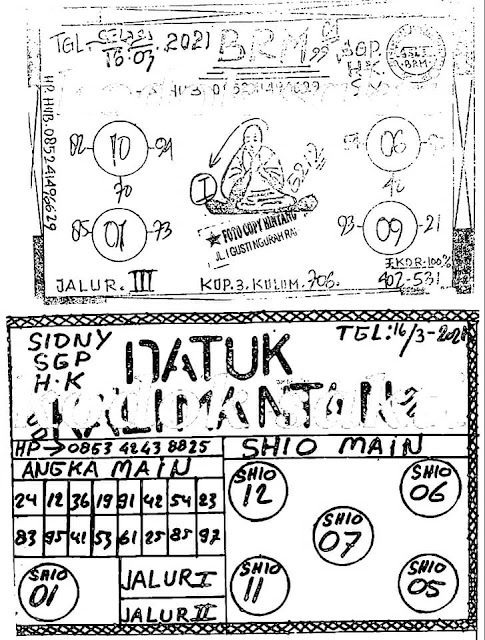 TGL. SELASA 16.03.2021
BRM 99
SGP.
H.K
SDY
GSLF BRM
HP. HUB. 085241496629
HUB. 085241496629
82 10 94
70
85 01 73
I
5212
FOTO COPY BINTANG
JL. I GUSTI NGURAH RAI
06
42
93 09 21
EKOR: 100%
402-531
JALUR. III
KUP. 3. KULUM. 706.
SIDNY
SGP
H.K
DATUK
KALIMANTAN
TGL: 16/3-2021
HP → 0853 4243 8825
ANGKA MAIN
24 12 36 19 91 42 54 23
83 95 41 53 61 25 85 97
SHIO 01
JALUR I
JALUR II
SHIO MAIN
SHIO 12
SHIO 06
SHIO 07
SHIO 11
SHIO 05